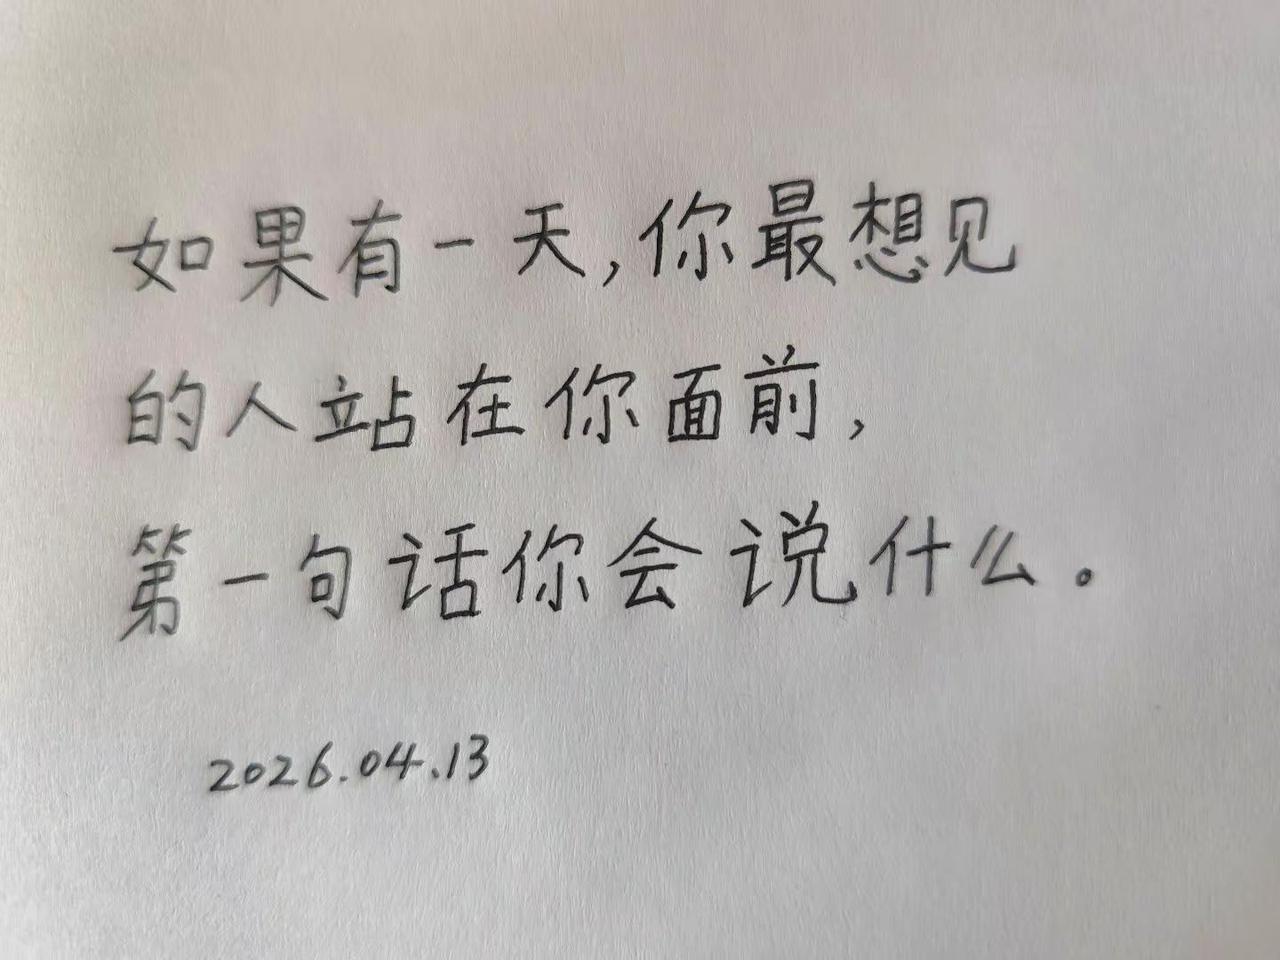 如果有一天,你最想见
的人站在你面前,
第一句话你会说什么。
2026.04.13